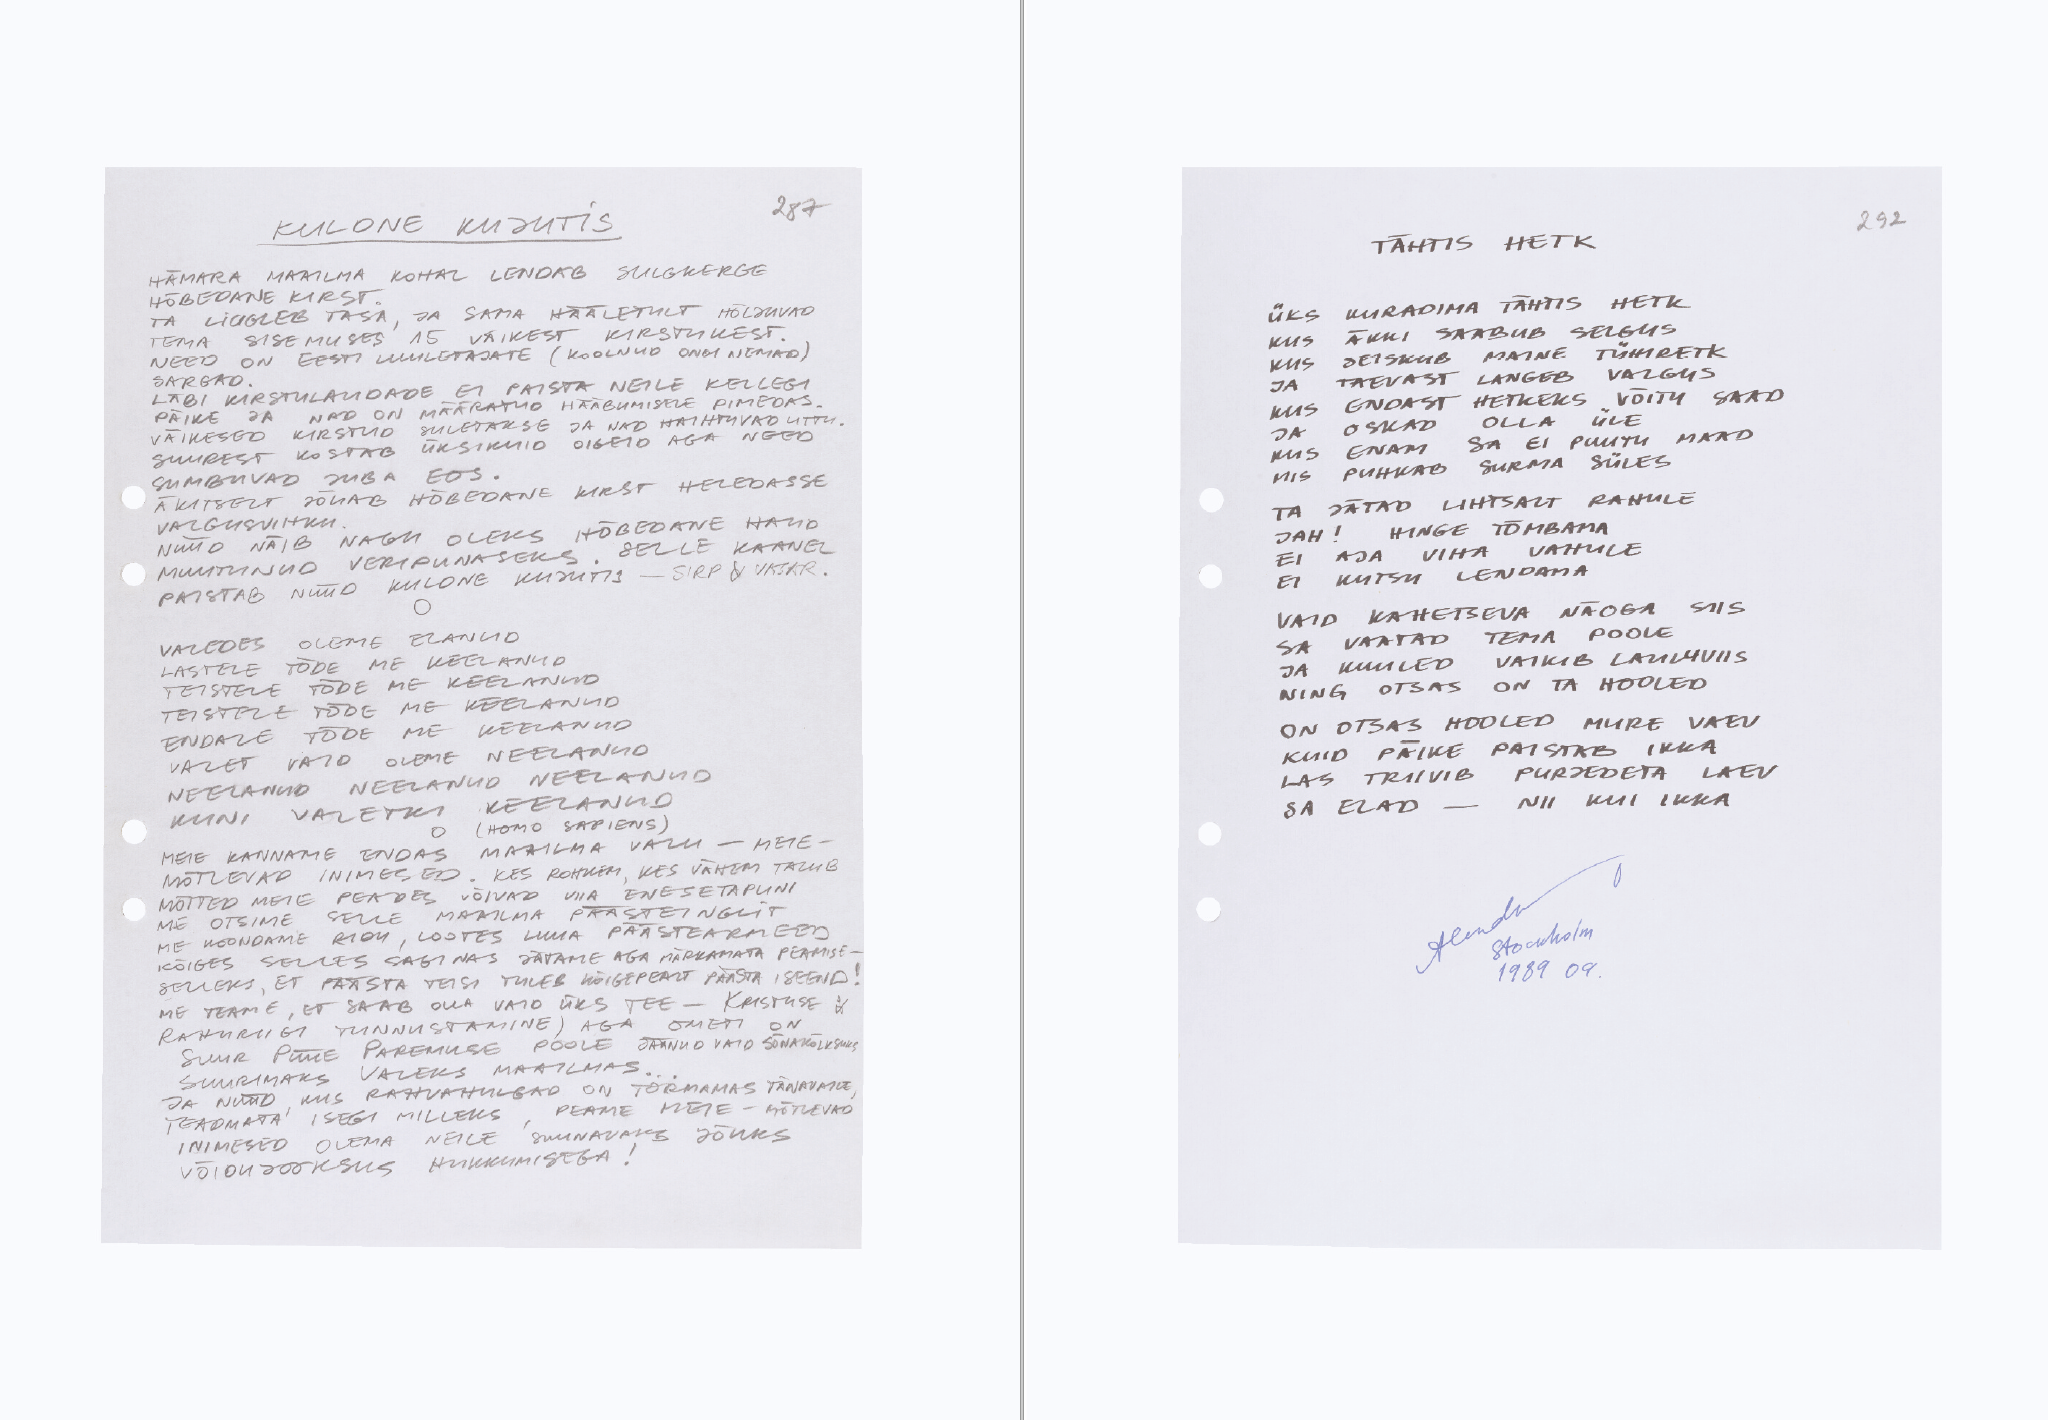 287
KULONE KUJUTIS
HÄMARA MAAILMA KOHAL LENDAB SULGKERGE
HÕBEDANE KIRST.
TA LIUGLEB TASA, JA SAMA HÄÄLETULT HÕLJUVAD
TEMA SISEMUSES 15 VÄIKEST KIRSTUKEST.
NEED ON EESTI LUULETAJATE (KOOLNUD ONGI NEMAD)
SARGAD.
LÄBI KIRSTULAUDADE EI PAISTA NEILE KELLEGI
PÄIKE JA NAD ON MÄÄRATUD HÄÄBUMISELE PIMEDAS.
VÄIKESED KIRSTUD SULETAKSE JA NAD HAIHTUVAD UTTU.
SUUREST KOSTAB ÜKSIKUID OIGEID AGA NEED
SUMBUVAD JUBA EOS.
ÄKITSELT JÕUAB HÕBEDANE KIRST HELEDASSE
VALGUSVIHKU.
NÜÜD NÄIB NAGU OLEKS HÕBEDANE HAUD
MUUTUNUD VERIPUNASEKS. SELLE KAANEL
PAISTAB NÜÜD KULONE KUJUTIS — SIRP & VASAR.
O
VALEDES OLEME ELANUD
LASTELE TÕDE ME KEELANUD
TEISTELE TÕDE ME KEELANUD
TEISTELE TÕDE ME KEELANUD
ENDALE TÕDE ME KEELANUD
VALET VAID OLEME NEELANUD
NEELANUD NEELANUD NEELANUD
KUNI VALETKI KEELANUD
O (HOMO SAPIENS)
MEIE KANNAME ENDAS MAAILMA VALU — MEIE —
MÕTLEVAD INIMESED. KES ROHKEM, KES VÄHEM TALUB
MÕTTED MEIE PEADES VÕIVAD VIIA ENESETAPUNI
ME OTSIME SELLE MAAILMA PÄÄSTEINGLIT
ME KOONDAME RIDU, LOOTES LUUA PÄÄSTEARMEED
KÕIGES SELLES SAGINAS JÄTAME AGA MÄRKAMATA PEAMISE —
SELLEKS, ET PÄÄSTA TEISI TULEB KÕIGEPEALT PÄÄSTA ISEEND!
ME TEAME, ET SAAB OLLA VAID ÜKS TEE — KRISTUSE &
RAHURIIGI TUNNUSTAMINE) AGA OMETI ON
SUUR PÜÜE PAREMUSE POOLE JÄÄNUD VAID SÕNAKÕLKSUKS
SUURIMAKS VALEKS MAAILMAS...
JA NÜÜD, KUS RAHVAHULGAD ON TORMAMAS TÄNAVAILE,
TEADMATA ISEGI MILLEKS, PEAME MEIE — MÕTLEVAD
INIMESED OLEMA NEILE SUUNAVAKS JÕUKS
VÕIDUJOOKSUS HUKKUMISEGA!
292
TÄHTIS HETK
ÜKS KURADIMA TÄHTIS HETK
KUS ÄKKI SAABUB SELGUS
KUS SEISKUB MAINE TÜHIRETK
JA TAEVAST LANGEB VALGUS
KUS ENDAST HETKEKS VÕITU SAAD
JA OSKAD OLLA ÜLE
KUS ENAM SA EI PUUTU MAAD
MIS PUHKAB SURMA SÜLES
TA JÄTAD LIHTSALT RAHULE
JAH! HINGE TÕMBAMA
EI AJA VIHA VAHULE
EI KUTSU LENDAMA
VAID KAHETSEVA NÄOGA SIIS
SA VAATAD TEMA POOLE
JA KUULED VAIKIB LAULUVIIS
NING OTSAS ON TA HOOLED
ON OTSAS HOOLED MURE VAEV
KUID PÄIKE PAISTAB IKKA
LAS TRIIVIB PURJEDETA LAEV
SA ELAD — NII KUI IKKA
Stockholm
1989 09.